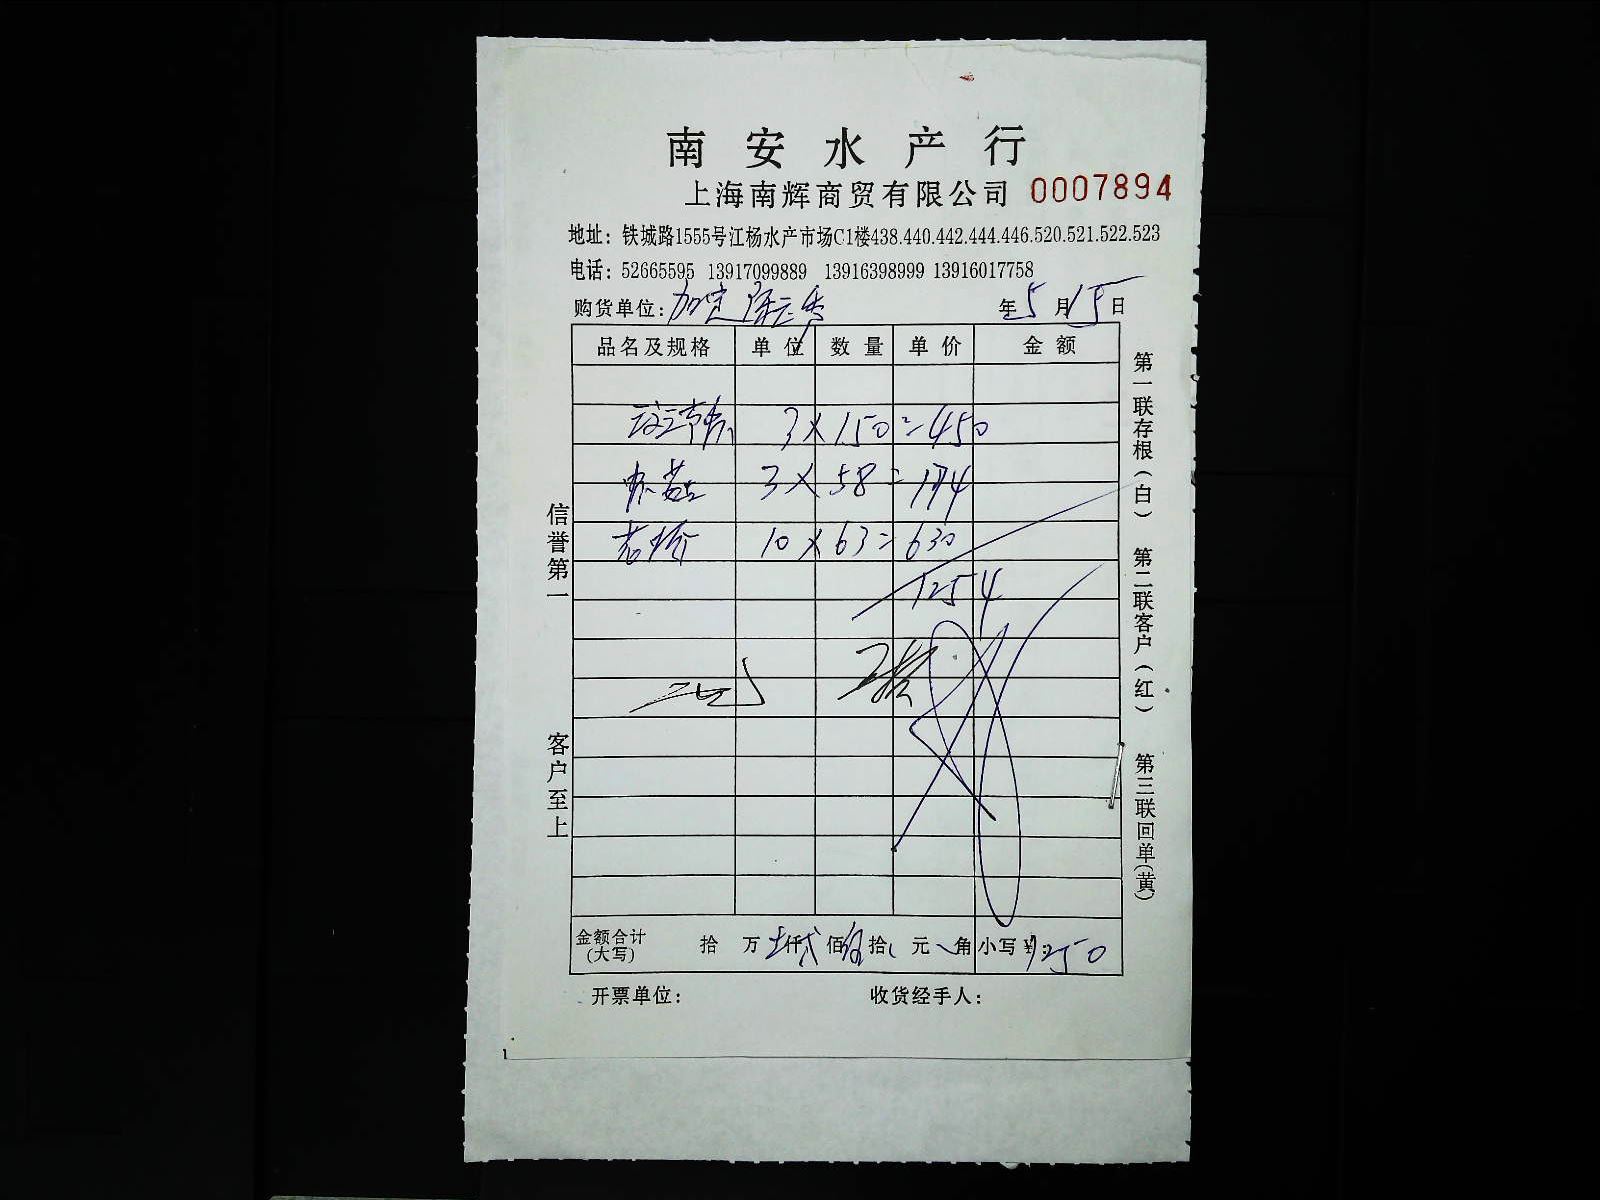 南安水产行
上海南辉商贸有限公司 0007894
地址：铁城路1555号江杨水产市场C1楼438.440.442.444.446.520.521.522.523
电话：52665595 13917099889 13916398999 13916017758
购货单位： 年5月15日
品名及规格 单位 数量 单价 金额
3×150=450
3×58=174
10×63=630
1254
金额合计(大写) 拾 万 仟 佰 拾 元 角 小写¥:1250
开票单位： 收货经手人：
信誉第一 客户至上
第一联存根（白） 第二联客户（红） 第三联回单（黄）